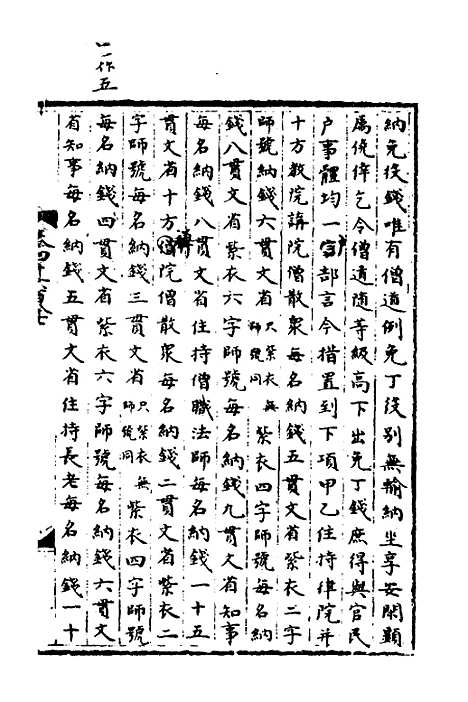 一作五
納免役錢唯有僧道例免丁役別無輸納坐享安閑顯
屬僥倖乞令僧道隨等級高下出免丁錢庶得與官民
户事體均一户部言今措置到下項甲乙住持律院并
十方教院講院僧散衆每名納錢五貫文省紫衣二字
師號納錢六貫文省只紫衣無師號同紫衣四字師號每名納
錢八貫文省紫衣六字師號每名納錢九貫文省知事
每名納錢八貫文省住持僧職法師每名納錢一十五
貫文省十方禪院僧散衆每名納錢二貫文省紫衣二
字師號每名納錢三貫文省只紫衣無師號同紫衣四字師號
每名納錢四貫文省紫衣六字師號每名納錢六貫文
省知事每名納錢五貫文省住持長老每名納錢一十